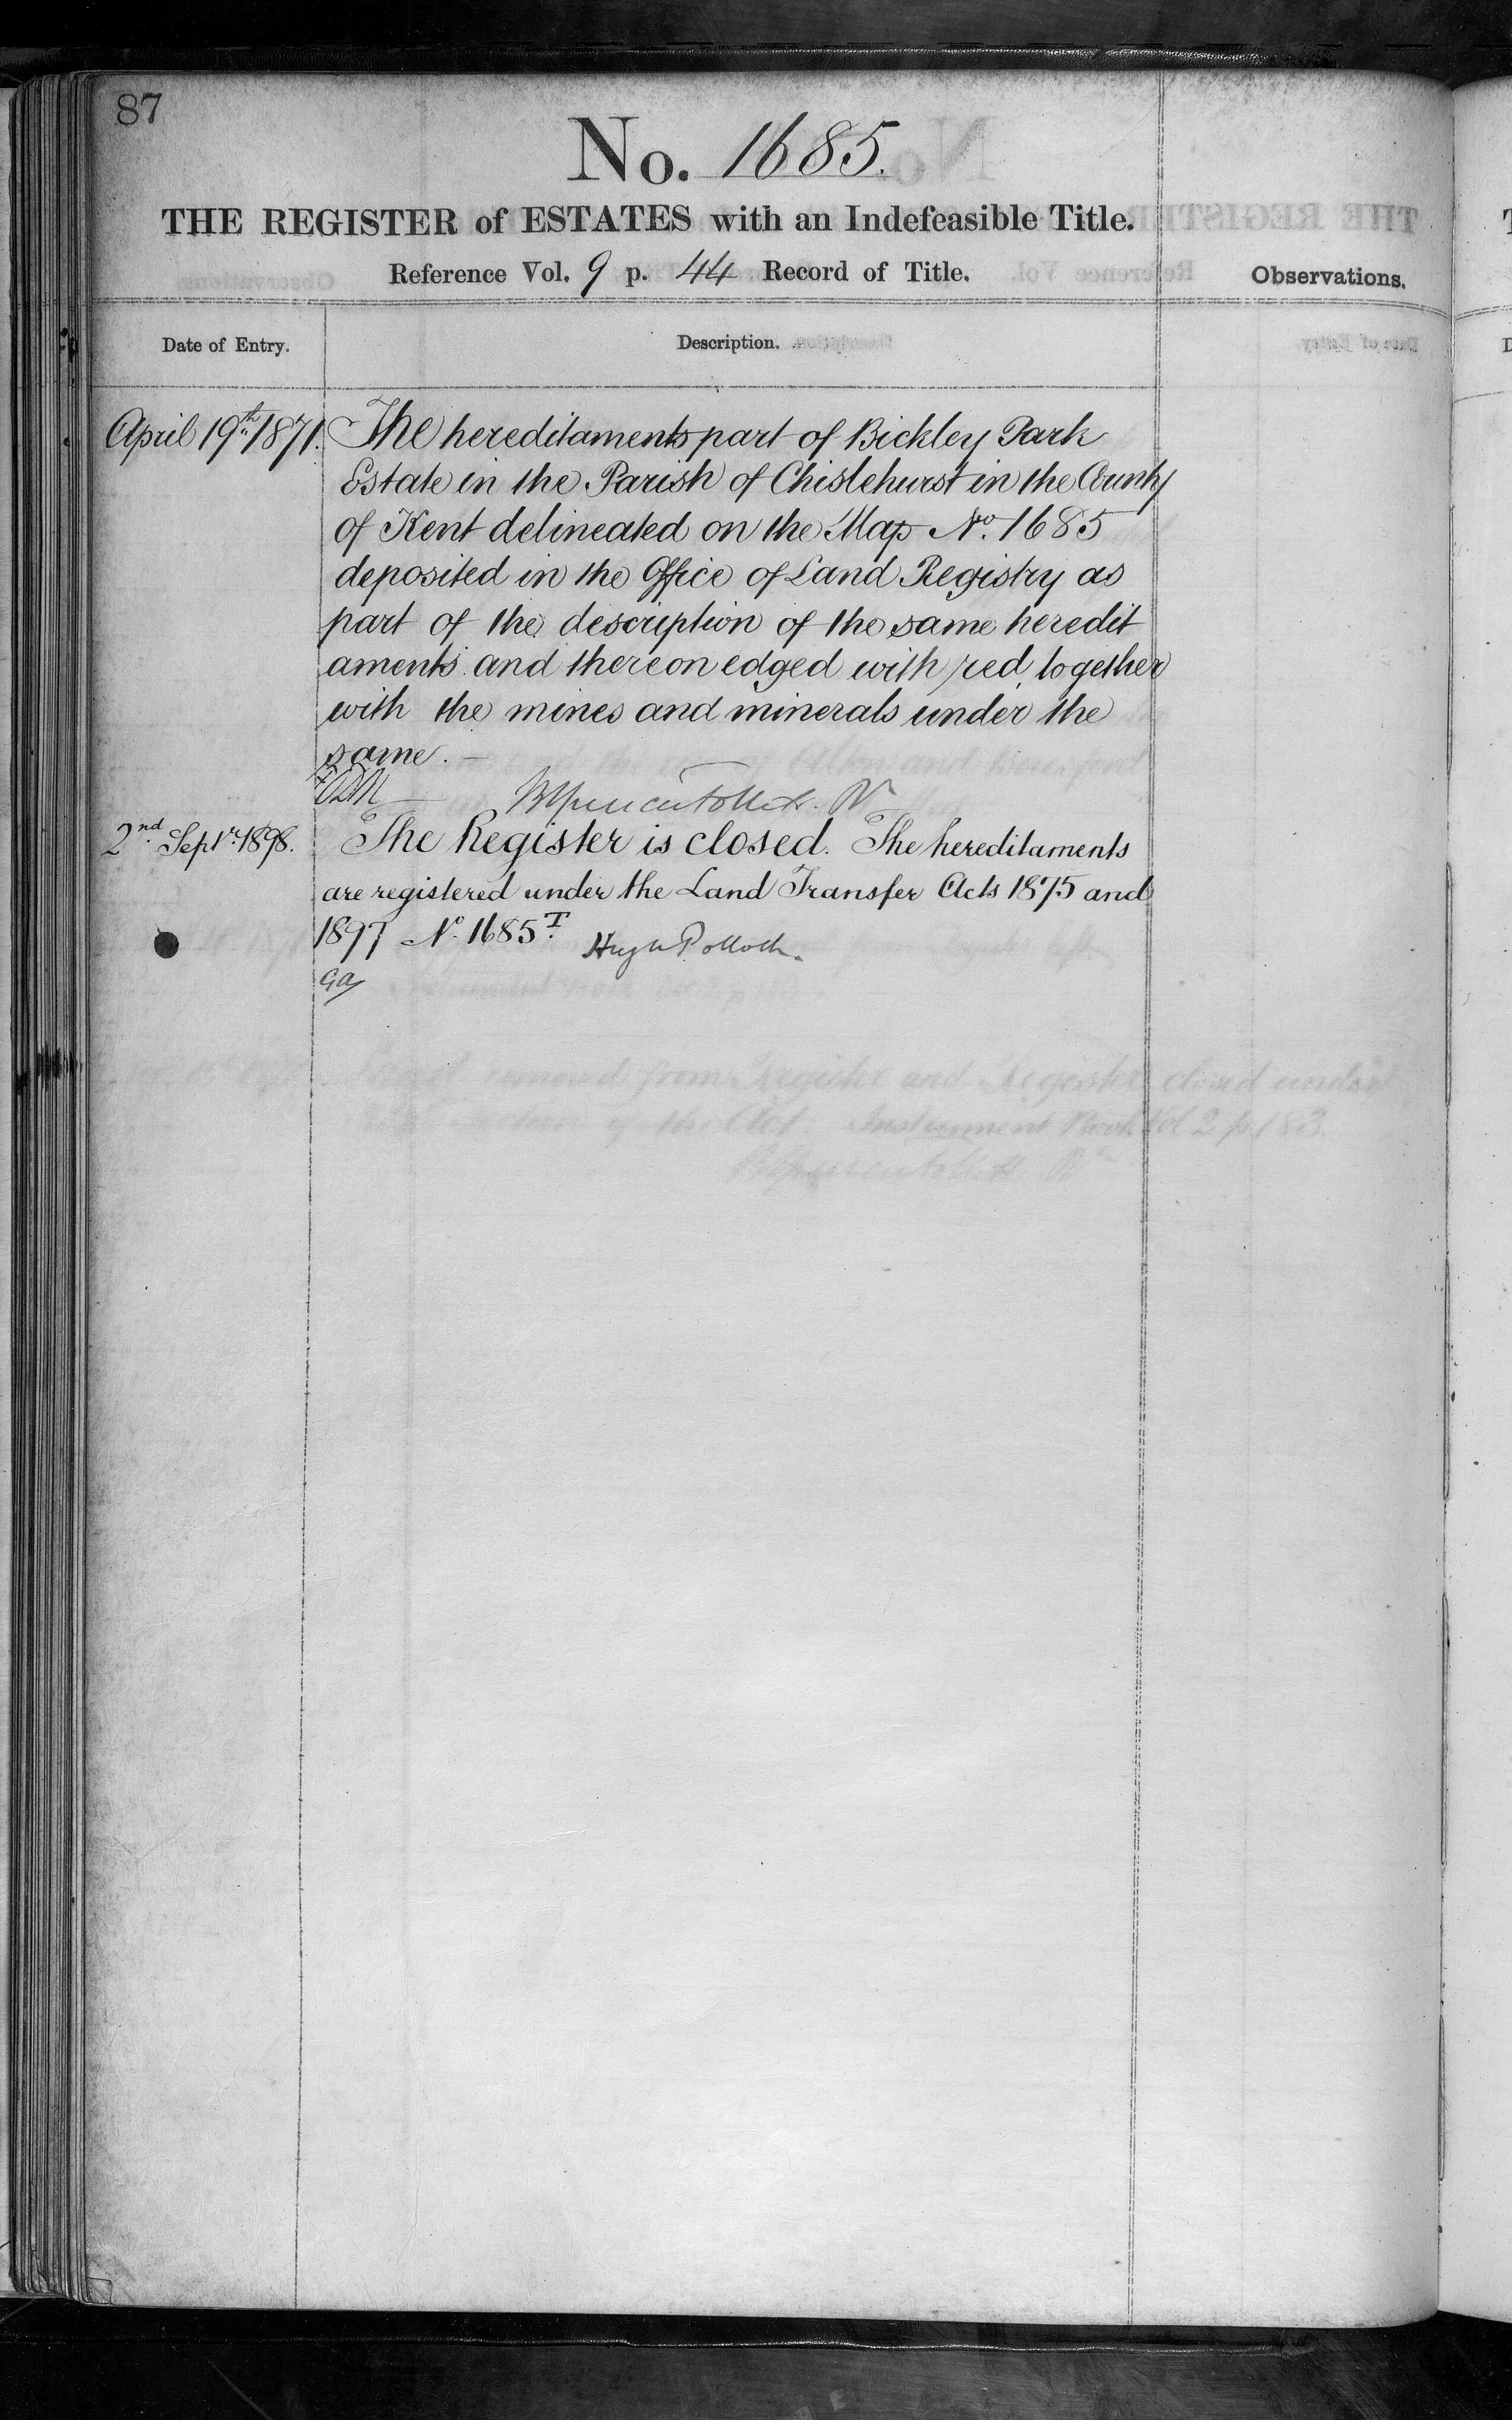 87
No. 1685.
THE REGISTER of ESTATES with an Indefeasible Title.
Reference Vol. 9 p. 44 Record of Title.
Observations.
Date of Entry.
Description.
April 19th 1871. The hereditaments part of Bickley Park
Estate in the Parish of Chislehurst in the County
of Kent delineated on the Map No. 1685
deposited in the Office of Land Registry as
part of the description of the same heredit
aments and thereon edged with red, together
with the mines and minerals under the
same. —
2nd Septr. 1898. The Register is closed. The hereditaments
are registered under the Land Transfer Acts 1875 and
1897 No. 1685T. Hugh Pollock.